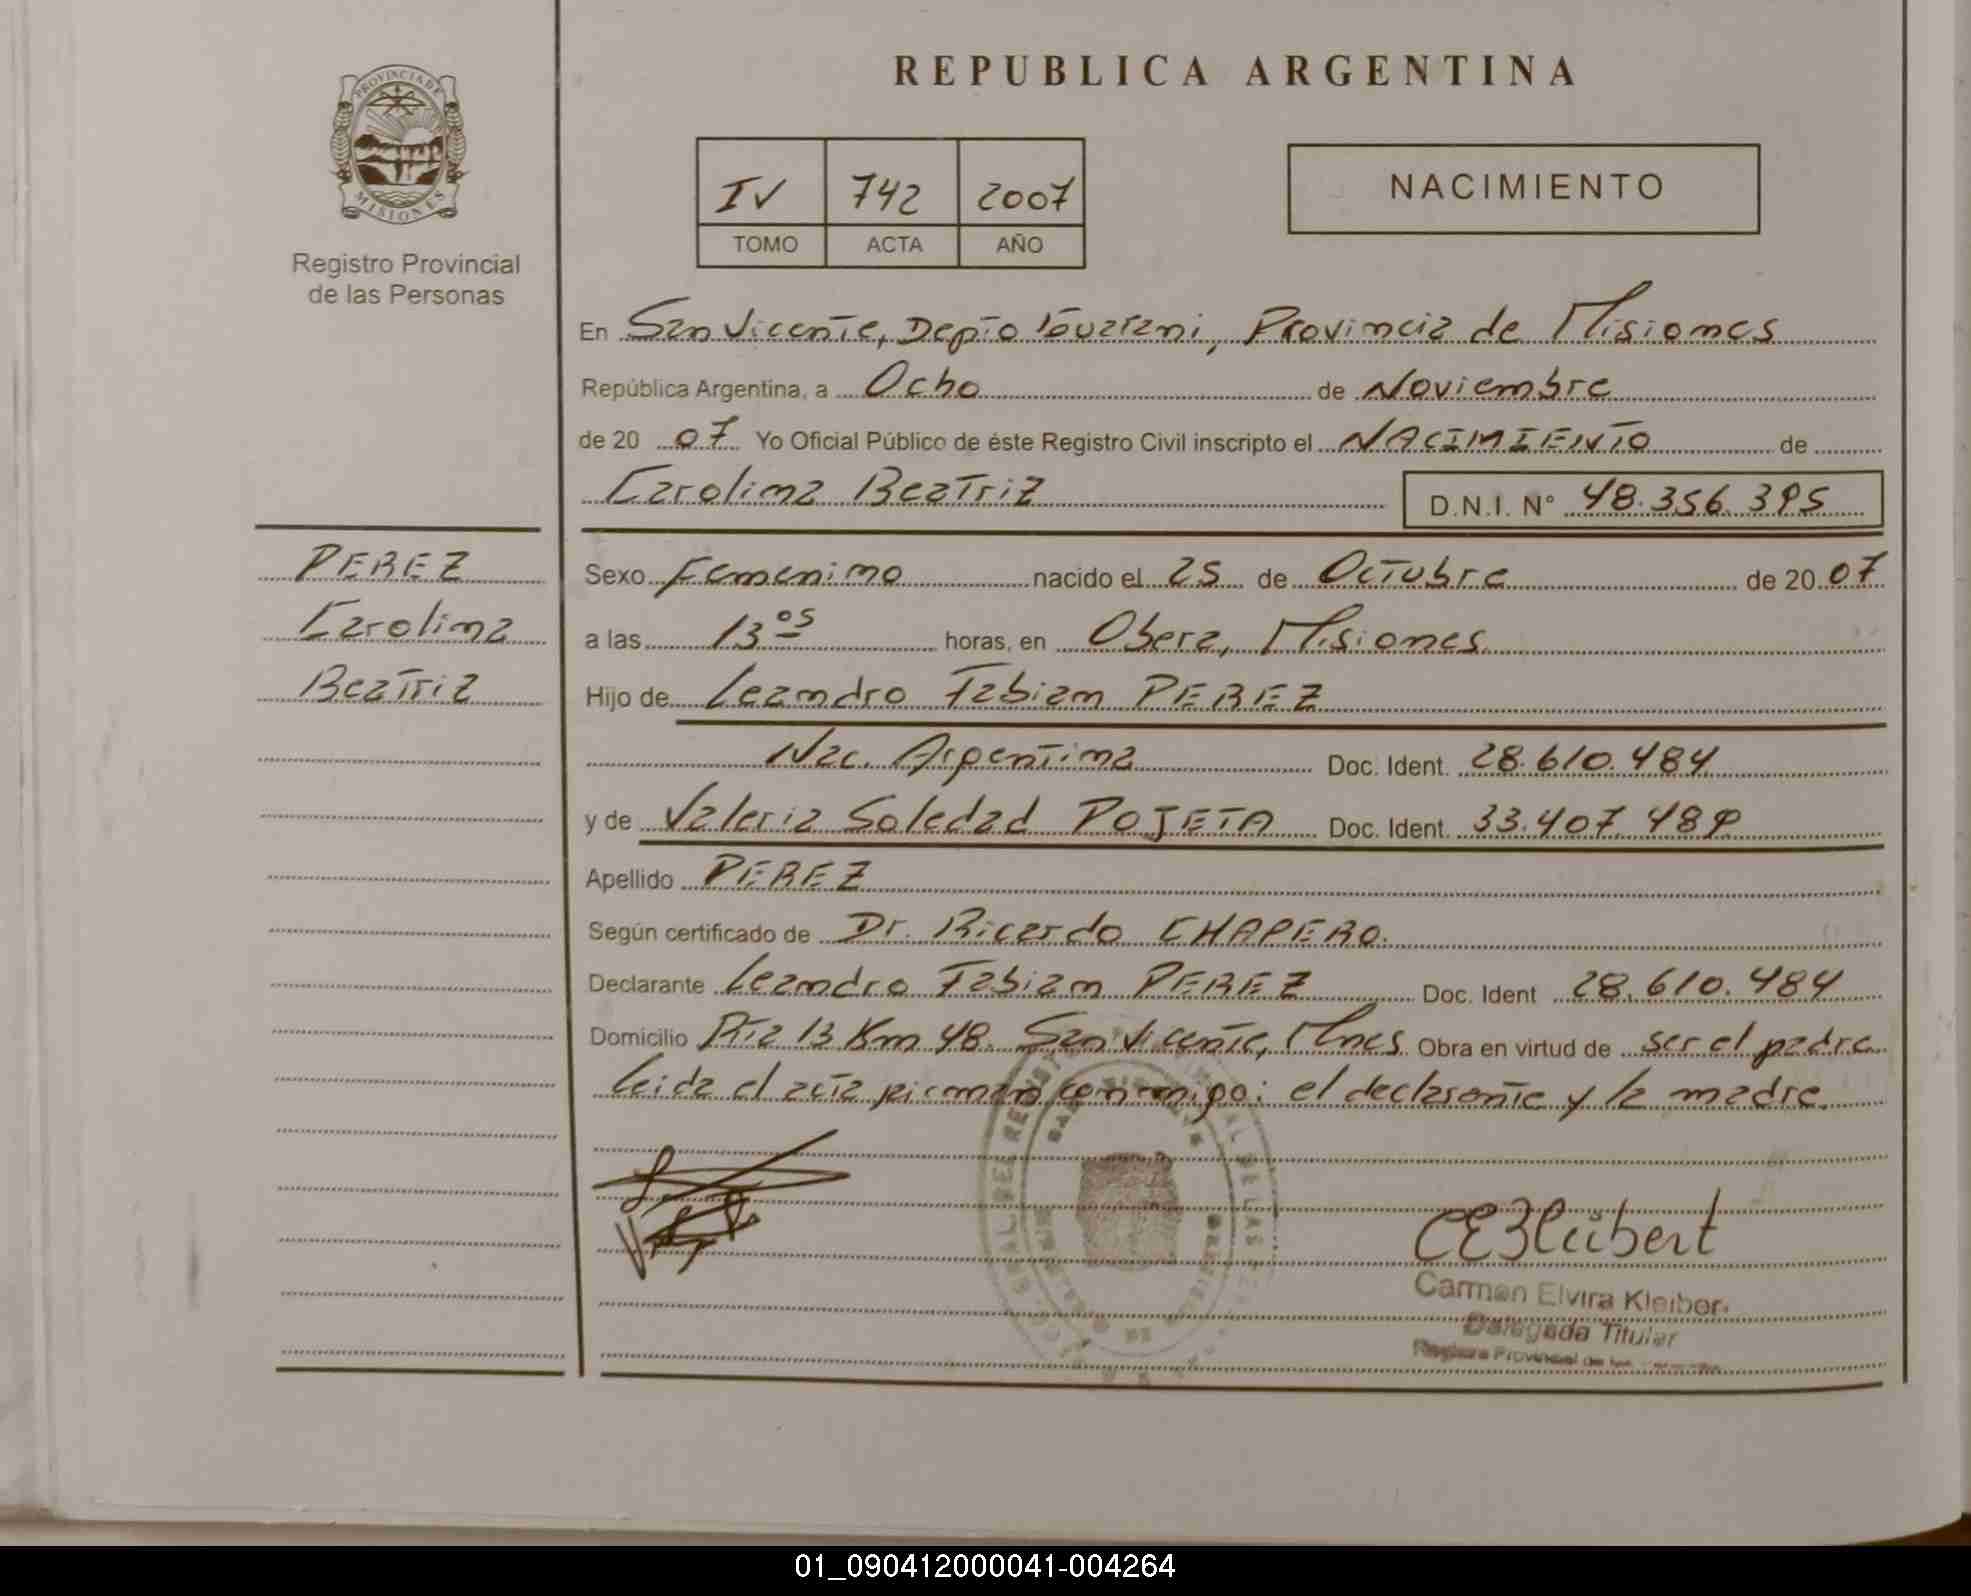 PROVINCIA DE
MISIONES
Registro Provincial
de las Personas
REPUBLICA ARGENTINA
IV 742 2007
TOMO ACTA AÑO
NACIMIENTO
En San Vicente, Depto Guarani, Provincia de Misiones
República Argentina, a Ocho de Noviembre
de 20 07 Yo Oficial Público de éste Registro Civil inscripto el NACIMIENTO de
Carolina Beatriz D.N.I. N° 48.356.395
PEREZ
Carolina
Beatriz
Sexo Femenino nacido el 25 de Octubre de 20 07
a las 13 05 horas, en Obera, Misiones.
Hijo de Leandro Fabian PEREZ
Nac. Argentina Doc. Ident. 28.610.484
y de Valeria Soledad POJETA Doc. Ident. 33.407.489
Apellido PEREZ
Según certificado de Dr. Ricardo CHAPERO.
Declarante Leandro Fabian PEREZ Doc. Ident 28.610.484
Domicilio Rta 13 Km 48. San Vicente, Mnes. Obra en virtud de ser el padre
Leida el acta firman conmigo: el declarante y la madre.
Carmen Elvira Kleiber
Delegada Titular
Registro Provincial de las
01_090412000041-004264